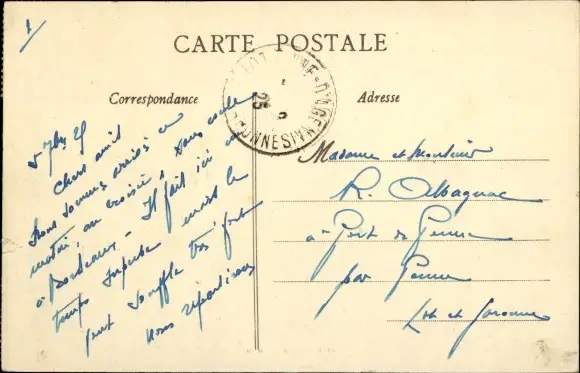 1
CARTE POSTALE
Correspondance
Adresse
PENNE-D'AGENAIS
LOT-ET-GARONNE
25
5 7bre 25
Chers amis
Nous sommes arrivés en
nous
à Bordeaux. - Il fait ici un
temps superbe mais le
vent souffle très fort
nous repartirons
Madame et Monsieur
R. Albagnac
à Port de Penne
par Penne
Lot et Garonne